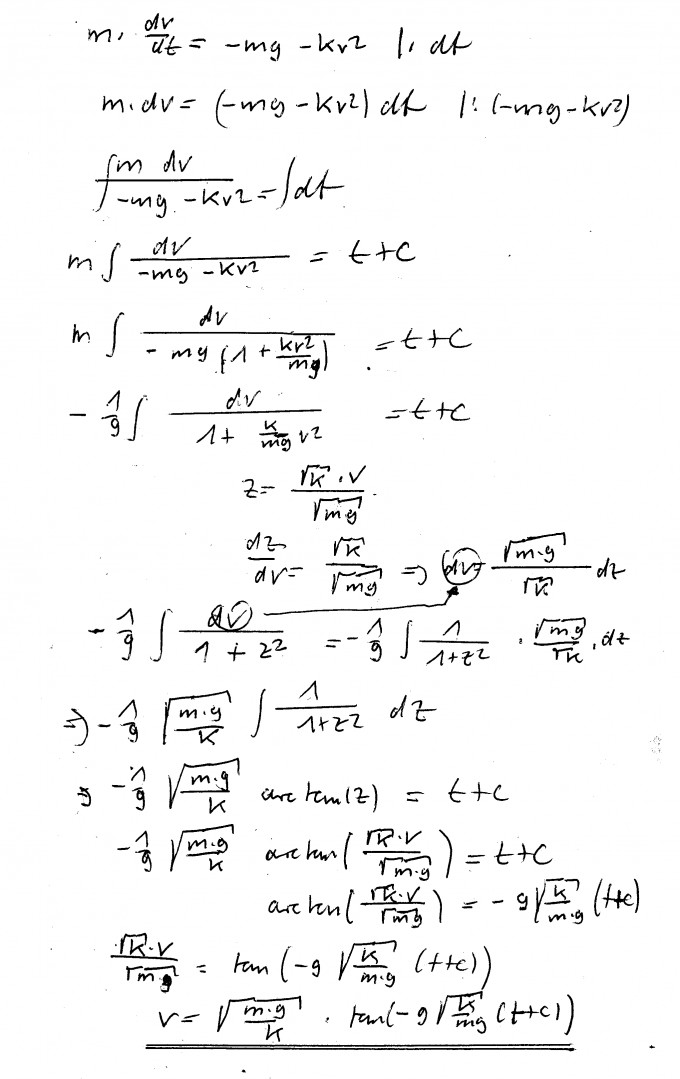 m · dv/dt = -mg - kv² |· dt
m·dv = (-mg - kv²) dt |: (-mg - kv²)
∫ m dv / (-mg - kv²) = ∫ dt
m ∫ dv / (-mg - kv²) = t + c
m ∫ dv / (-mg (1 + kv²/mg)) = t + c
- 1/g ∫ dv / (1 + k/mg v²) = t + c
z = √k · v / √mg
dz/dv = √k / √mg => dv = √m·g / √k dz
- 1/g ∫ dv / (1 + z²) = - 1/g ∫ 1/(1+z²) · √mg / √k · dz
=> - 1/g √(m·g/k) ∫ 1/(1+z²) dz
=> - 1/g √(m·g/k) arctan(z) = t + c
- 1/g √(m·g/k) arctan(√k·v / √m·g) = t + c
arctan(√k·v / √mg) = - g √(k/m·g) (t+c)
√k·v / √mg = tan(-g √(k/m·g) (t+c))
v = √(m·g/k) · tan(-g √(k/mg) (t+c))